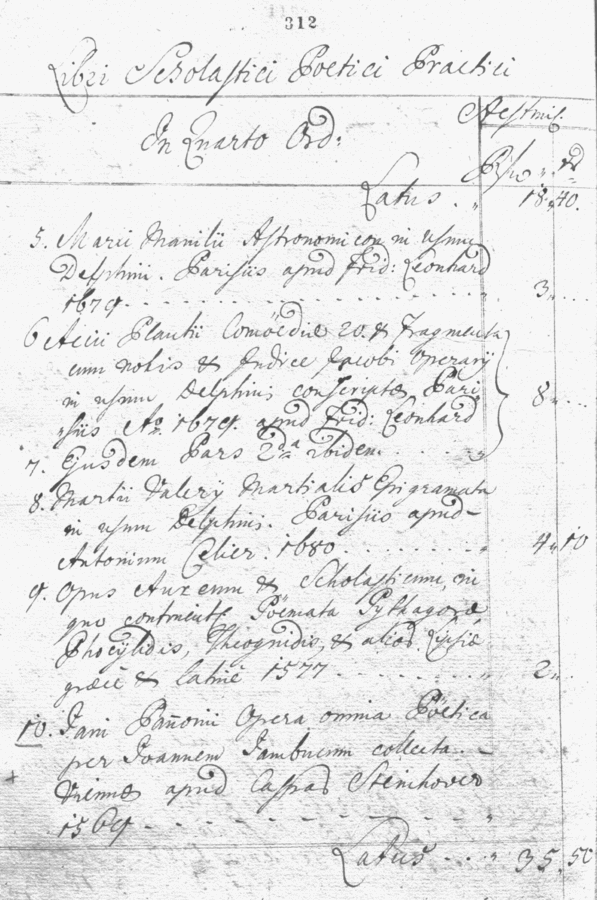 312
Libri Scholastici Poetici Practici
Aestimõ
In Quarto Ord:
Latus . „ 18„40.
5. Marii Manilii Astronomicon in usum
Delphini. Parisiis apud Frid: Leonhard
1679. - - - - - „ 3„ ...
6 Accii Plautii Comöediæ 20. & Fragmenta
cum notis & Indice Jacobi Operarÿ
in usum Delphini conscriptæ Pari
siis Aõ. 1679. apud Frid: Leonhard
8„ ...
7. Ejusdem Pars 2da ibidem. . . . „
8. Martii Valerÿ Martialis Epigramata
in usum Delphini. Parisiis apud
Antonium Celier. 1680. . . . . . „ 4„10
9. Opus Aureum & Scholasticum, in
quo continentr Poëmata Pythagoræ
Phocylidis, Theognidis, & alior. Lipsiæ
græcè & latinè 1577 - - - „ 2„ ..
10. Jani Pañonii Opera omnia Pöetica
per Joannem Sambucum collecta. -
Viennæ apud Caspar Steinhover
1569 - - - - - „
Latus . . . „ 35„50